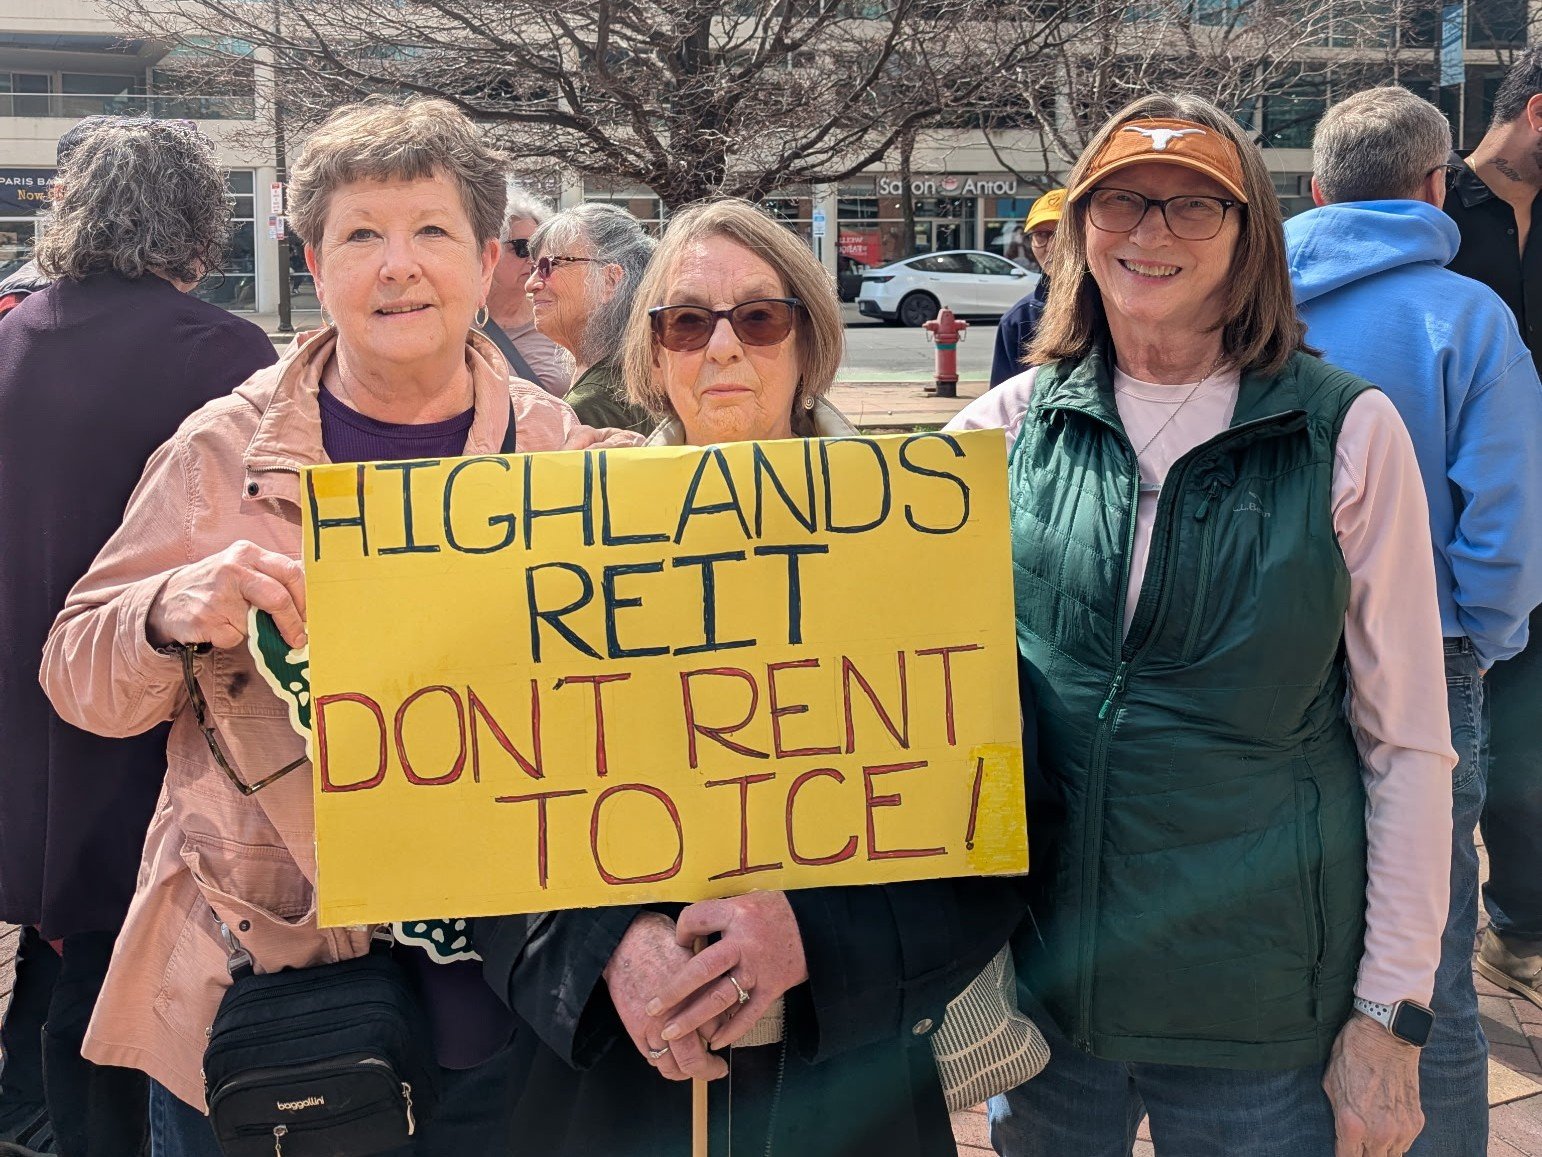 PARIS BA
Now
Salon Anrou
HIGHLANDS
REIT
DON'T RENT
TO ICE!
L.L.Bean
baggallini